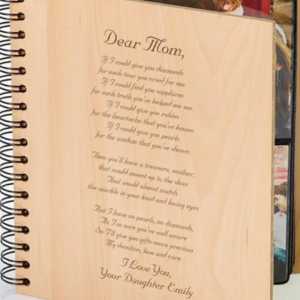 Dear Mom,
If I could give you diamonds
for each tear you cried for me
If I could find you sapphires
for each truth you've helped me see
If I could give you rubies
for the heartache that you've known
If I could give you pearls
for the wisdom that you've shown
Then you'll have a treasure, mother,
that would mount up to the skies
That would almost match
the sparkle in your kind and loving eyes
But I have no pearls, no diamonds,
As I'm sure you're well aware
So I'll give you gifts more precious
My devotion, love and care
I Love You,
Your Daughter Emily